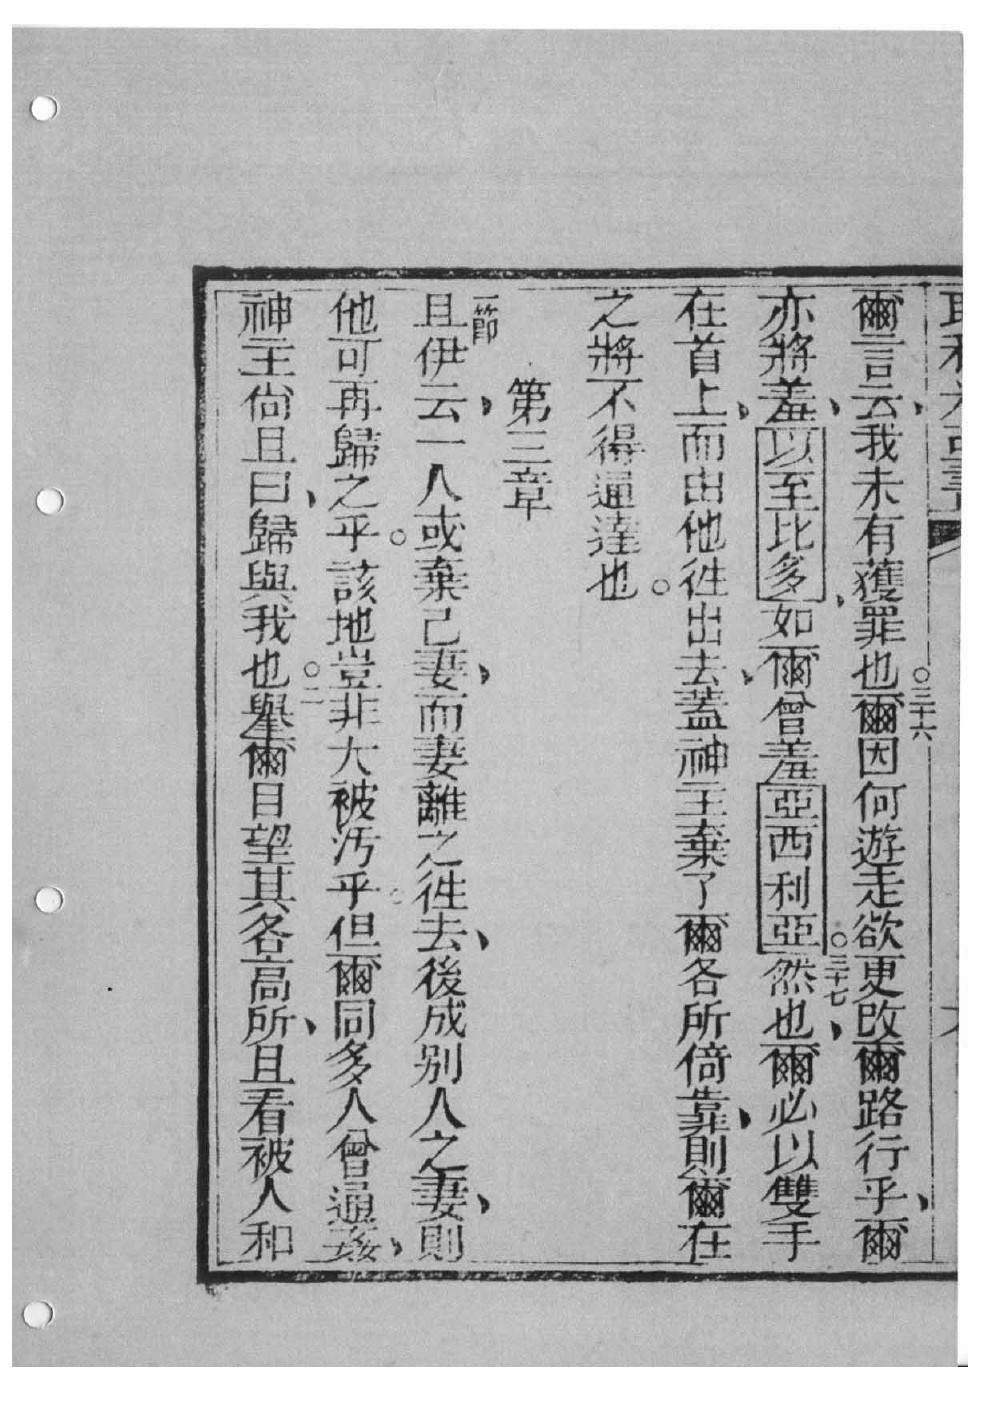 爾言云、我未有獲罪也○三十六爾因何遊走欲更改爾路行乎、爾
亦將羞、以至比多、如爾曾羞亞西利亞然也○三十七爾必、以雙手
在首上、而由他徃出去、蓋神主棄了爾各所倚靠、則爾在
之將不得通達也○
第三章
一節
且伊云、一人或棄己妻、而妻離之徃去、後成别人之妻、則
他可再歸之乎○該地豈非大被汚乎○但爾同多人曾通姦、
神主尚且曰、歸與我也○二舉爾目望其各高所、且看被人和